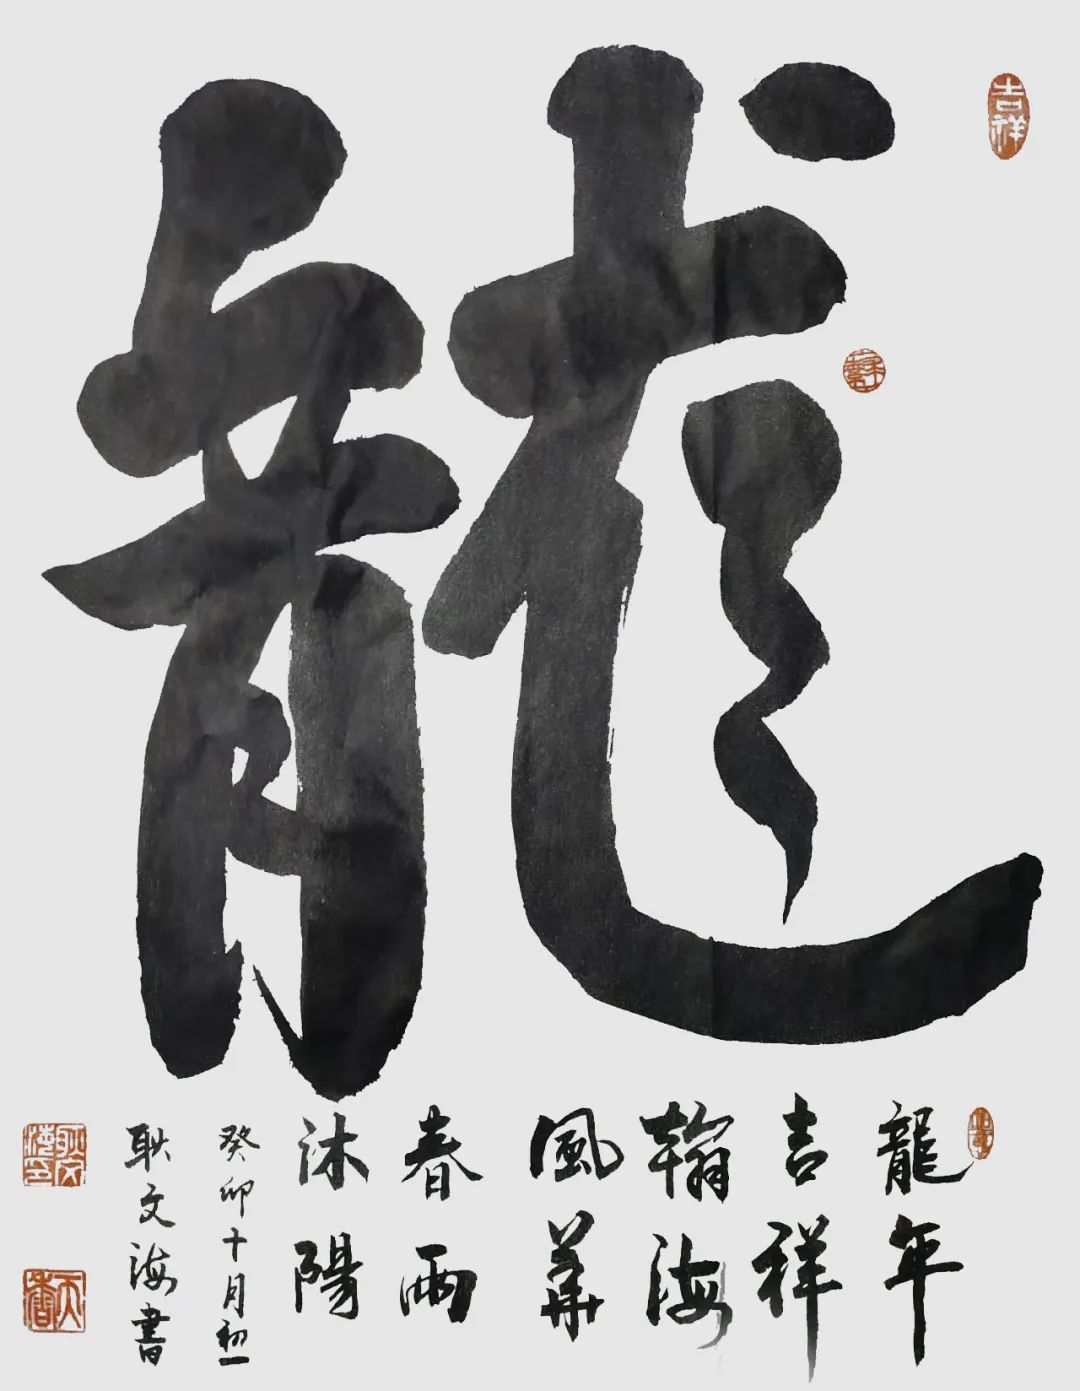 龍
吉祥
龍年
吉祥
翰海
風華
春雨
沐陽
癸卯十月初一
耿文海書
耿文海印